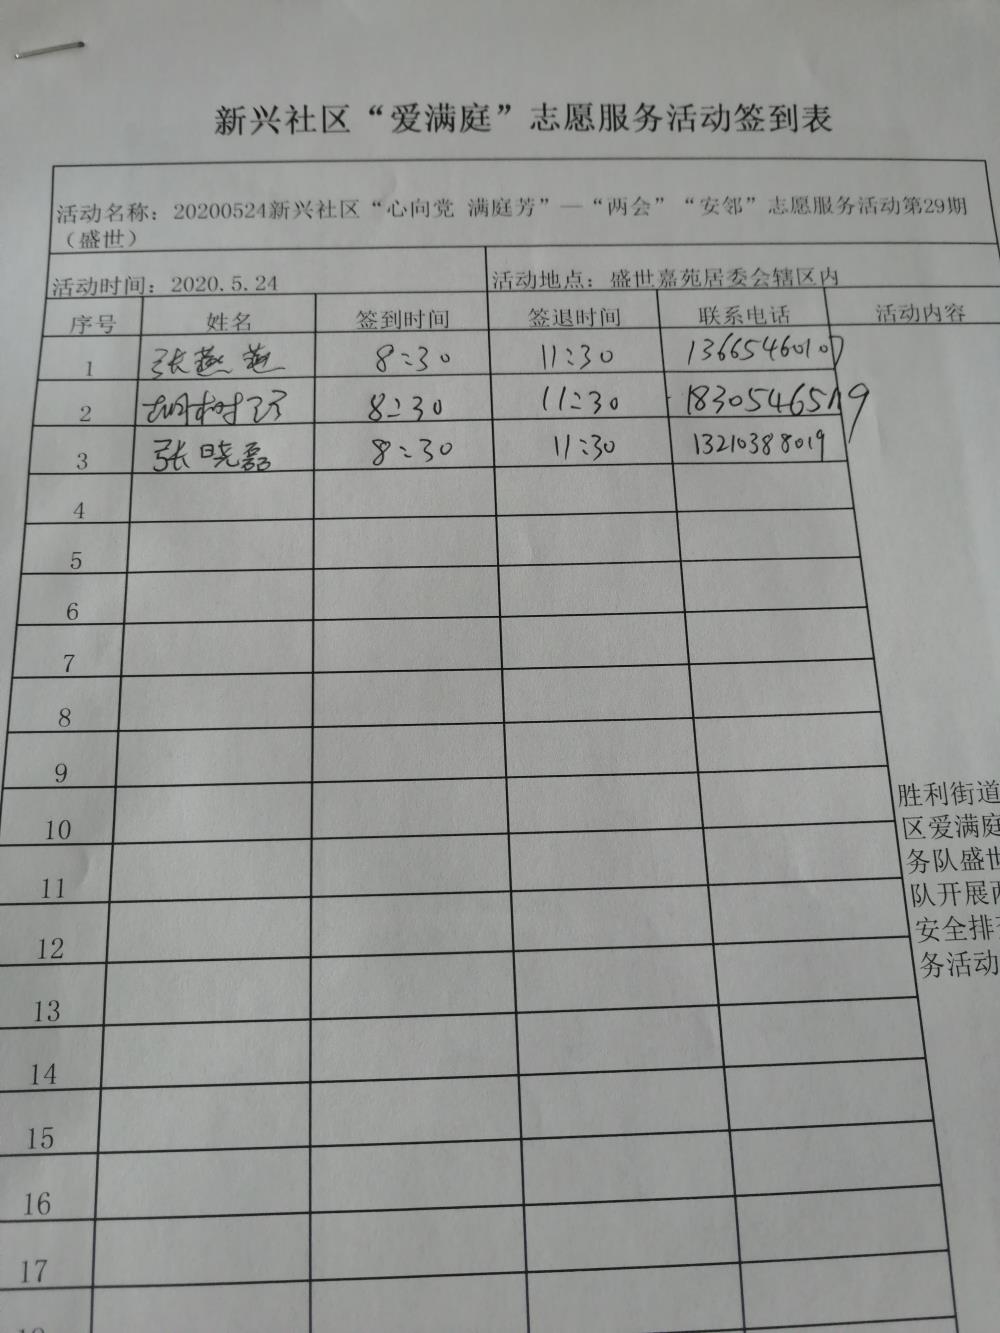 新兴社区“爱满庭”志愿服务活动签到表
活动名称：20200524新兴社区“心向党 满庭芳”—“两会”“安邻”志愿服务活动第29期
（盛世）
活动时间：2020.5.24 活动地点：盛世嘉苑居委会辖区内
序号 姓名 签到时间 签退时间 联系电话 活动内容
1 张燕燕 8:30 11:30 13665460107
2 胡树 8:30 11:30
3 张晓磊 8:30 11:30 13210388019
4
5
6
7
8
9
10
11
12
13
14
15
16
17
胜利街道
区爱满庭
务队盛世
队开展两
安全排查
务活动